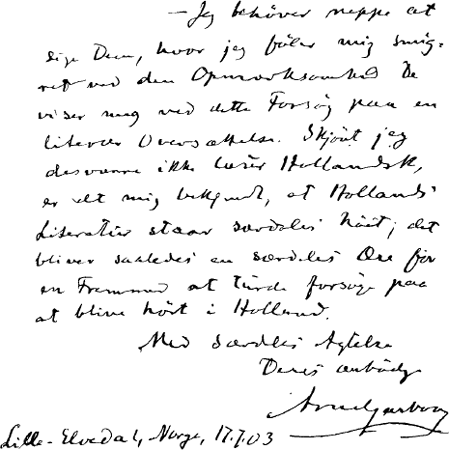 — Jeg behøver neppe at
sige Dem, hvor jeg føler mig smig-
ret ved den Opmærksomhed De
viser meg ved dette Forsøg paa en
literær Oversættelse. Skjønt jeg
desværre ikke læser Hollandsk,
er det mig bekjendt, at Hollands
Literatur staar særdeles høit; det
bliver saaledes en særdeles Ære for
en Fremmed at turde forsøge paa
at blive hørt i Holland.
Med særdeles Agtelse
Deres ærbødige
Arne Garborg
Lille-Elvedal, Norge, 17.7.03